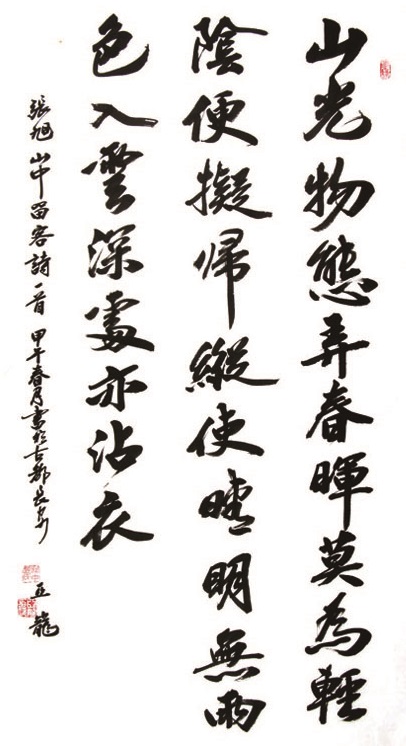 山光物態弄春暉莫為輕
陰便擬歸縱使晴明無雨
色入雲深處亦沾衣
張旭山中留客詩一首 甲午春月書於古都長安 五龍